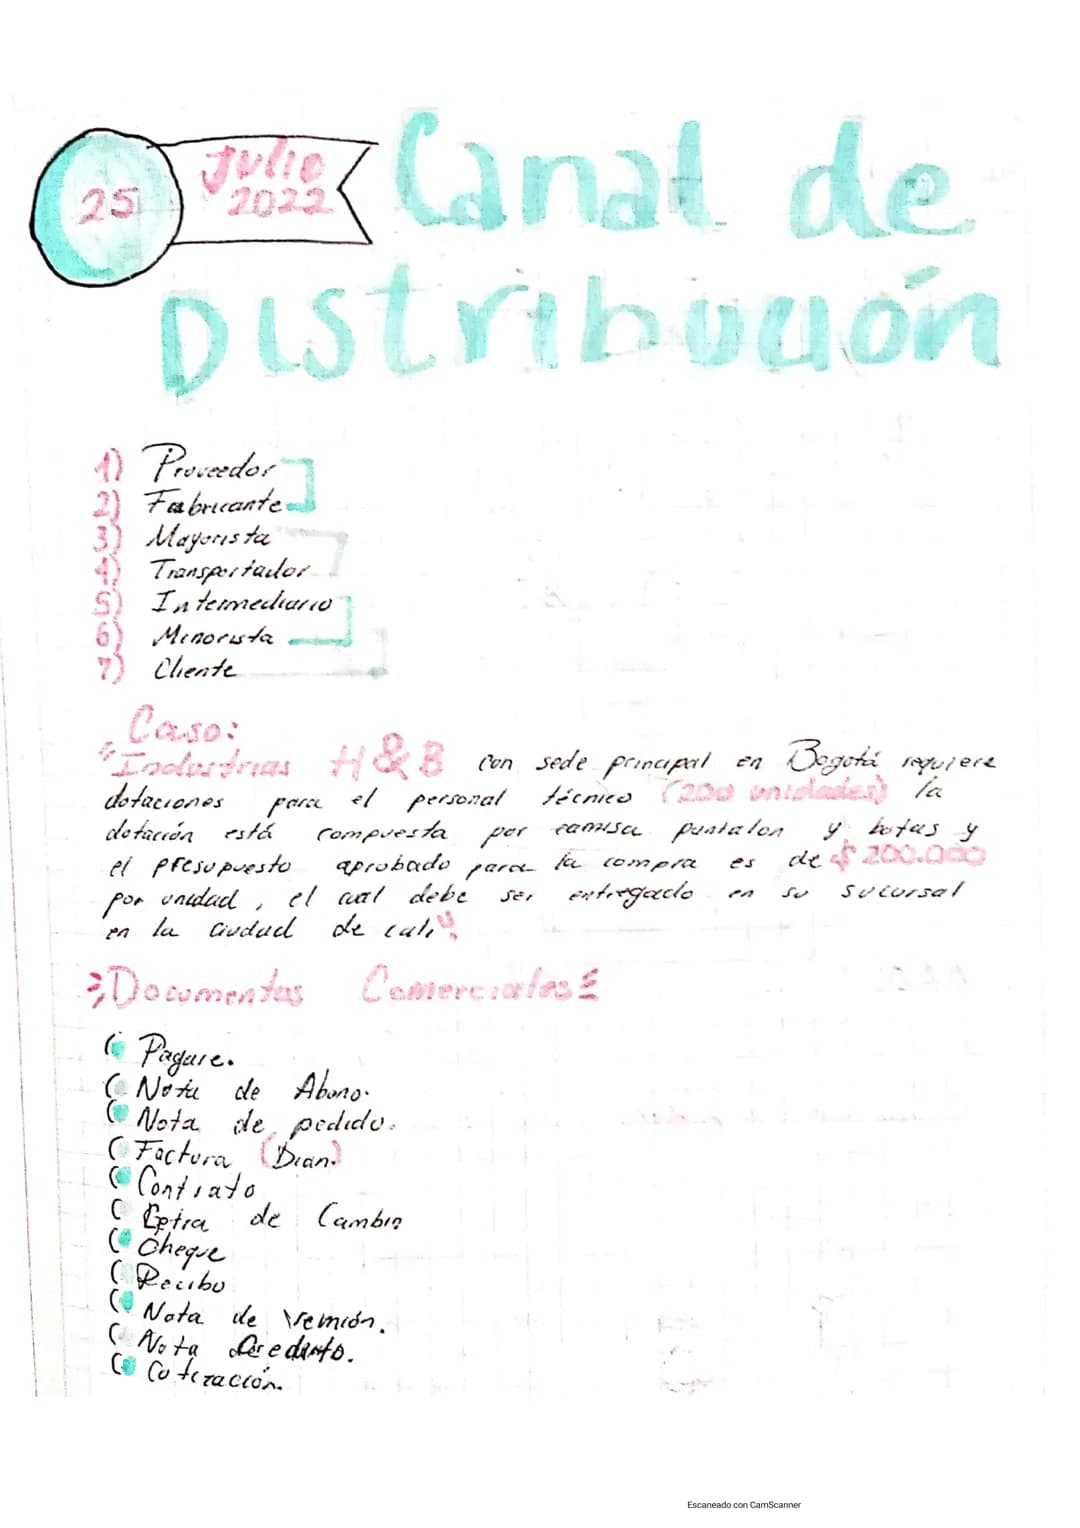 25
Julio
2022
Canal de
Distribución
1) Proveedor
2) Fabricante
3) Mayorista
4) Transportador
5) Intermediario
6) Minorista
7) Cliente
Caso:
"Industrias H&B con sede principal en Bogotá requiere
dotaciones para el personal técnico (200 unidades) la
dotación está compuesta por camisa pantalon y botas y
el presupuesto aprobado para la compra es de $ 200.000
por unidad, el cual debe ser entregado en su sucursal
en la ciudad de cali"
Documentos Comerciales
Pagare.
Nota de Abono.
Nota de pedido.
Factura (Dian.)
Contrato
Letra de Cambio
Cheque
Recibo
Nota de remión.
Nota
Cotización.
Escaneado con CamScanner